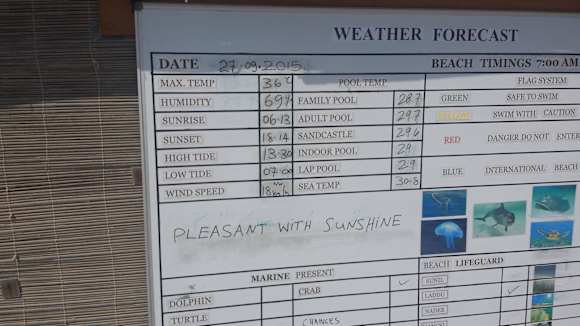 WEATHER FORECAST
DATE 27/09.2015 BEACH TIMINGS 7:00 AM
MAX. TEMP 36°C POOL TEMP FLAG SYSTEM
HUMIDITY 69% FAMILY POOL 28.7 GREEN SAFE TO SWIM
SUNRISE 06-13 ADULT POOL 29.7 YELLOW SWIM WITH CAUTION
SUNSET 18-14 SANDCASTLE 29.6 RED DANGER DO NOT ENTER
HIGH TIDE 13-30 INDOOR POOL 29
LOW TIDE 07-00 LAP POOL BLUE INTERNATIONAL BEACH
WIND SPEED 18 SEA TEMP. 30-8
PLEASANT WITH SUNSHINE
MARINE PRESENT BEACH LIFEGUARD
DOLPHIN CRAB ✓ SUNIL
TURTLE LADDU ✓
CHANCES NADER